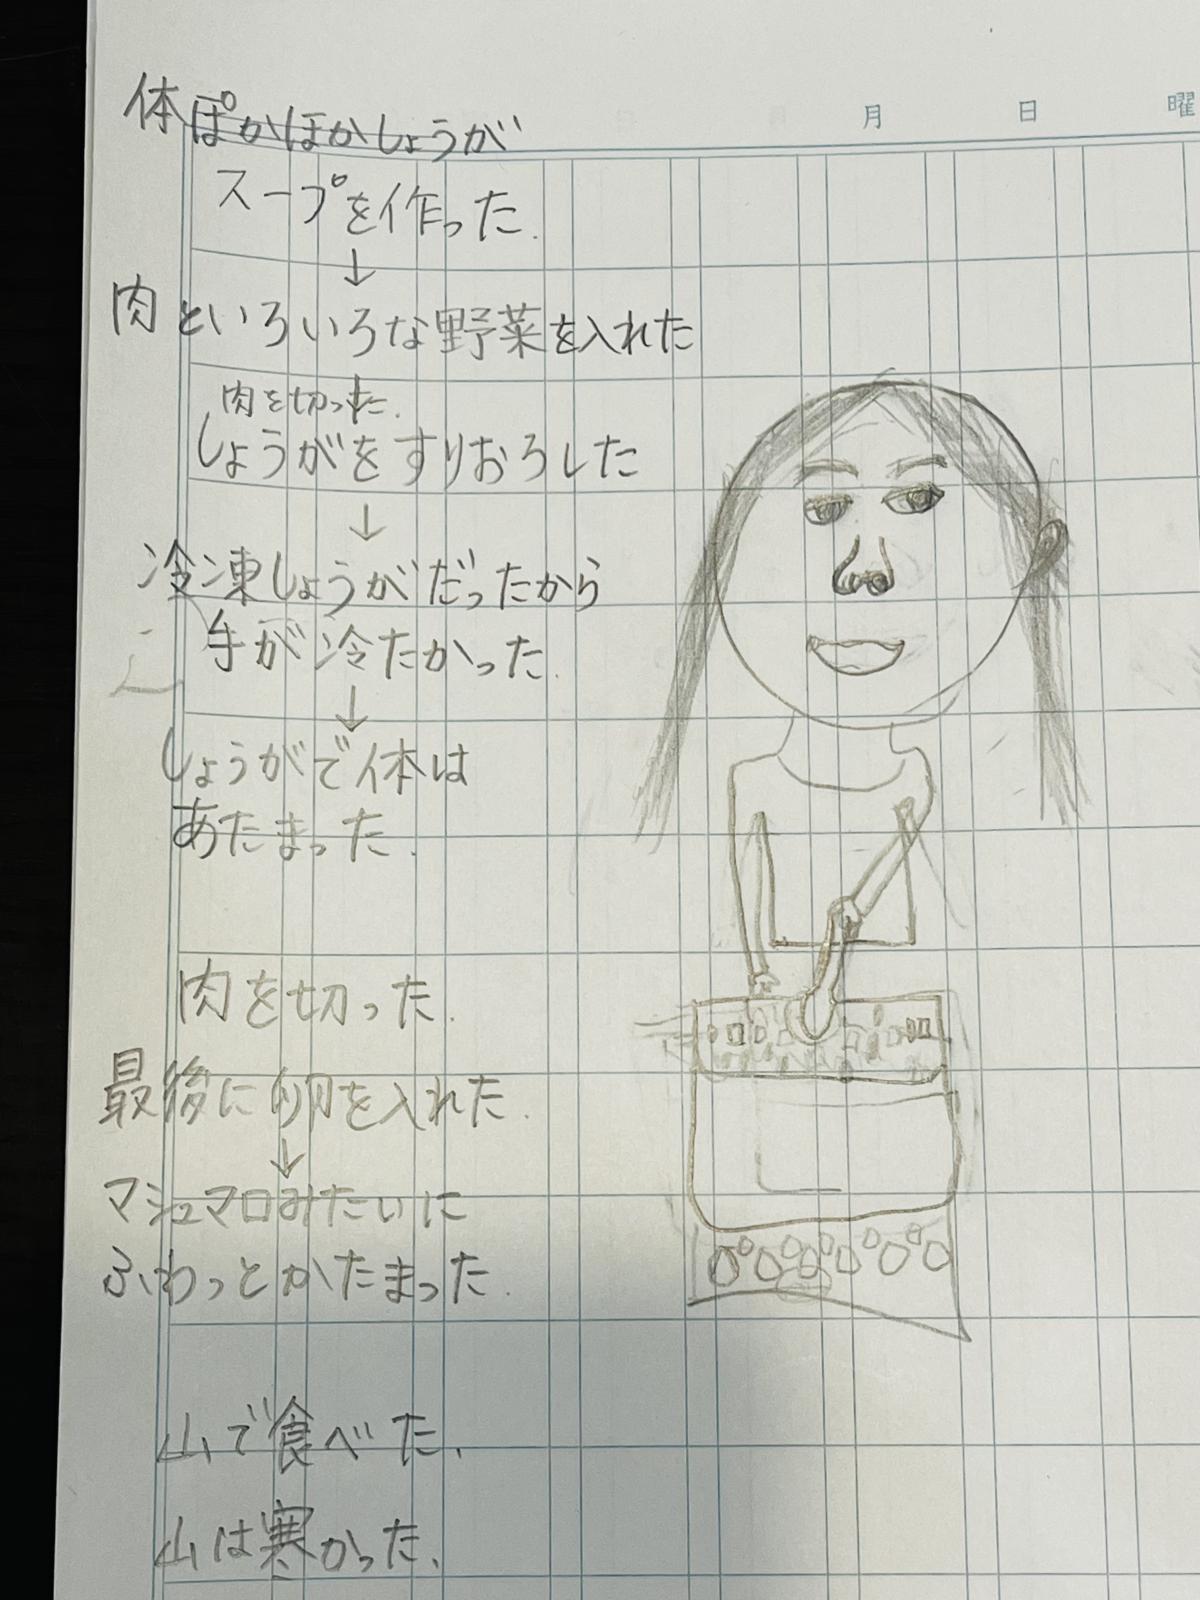 月 日 曜
体ぽかほかしょうが
スープを作った.
↓
肉といろいろな野菜を入れた
↓
肉を切った.
しょうがをすりおろした
↓
冷凍しょうがだったから
手が冷たかった.
↓
しょうがで体は
あたまった.
肉を切った.
最後に卵を入れた.
↓
マシュマロみたいに
ふわっとかたまった.
山で食べた.
山は寒かった.